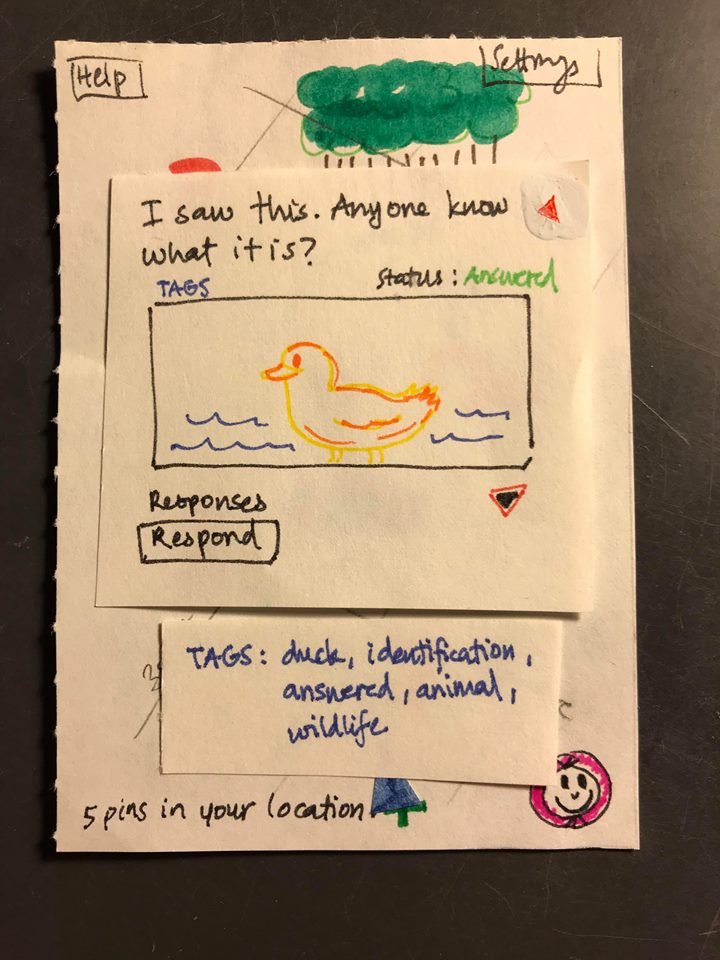 Help
Settings
I saw this. Anyone know
what it is?
TAGS
Status: Answered
Responses
Respond
TAGS: duck, identification,
answered, animal,
wildlife
5 pins in your location